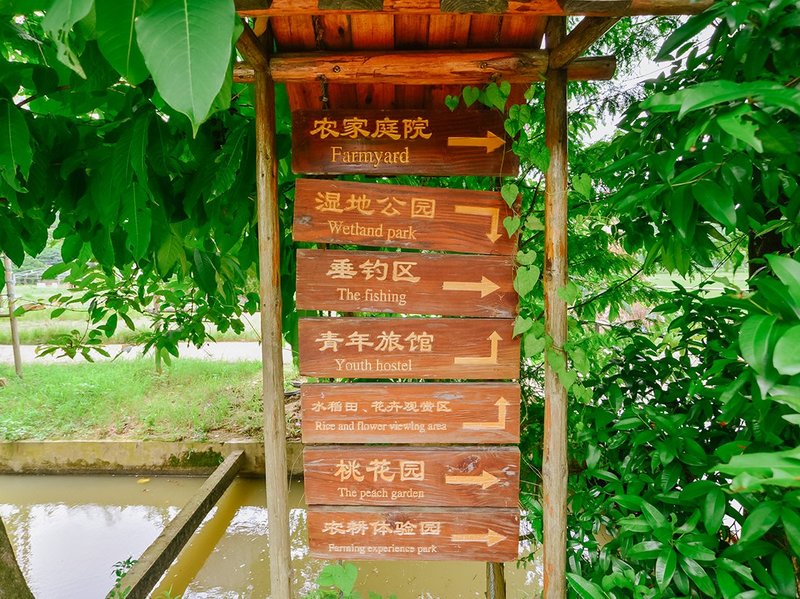 农家庭院
Farmyard
湿地公园
Wetland park
垂钓区
The fishing
青年旅馆
Youth hostel
水稻田、花卉观赏区
Rice and flower viewing area
桃花园
The peach garden
农耕体验园
Farming experience park